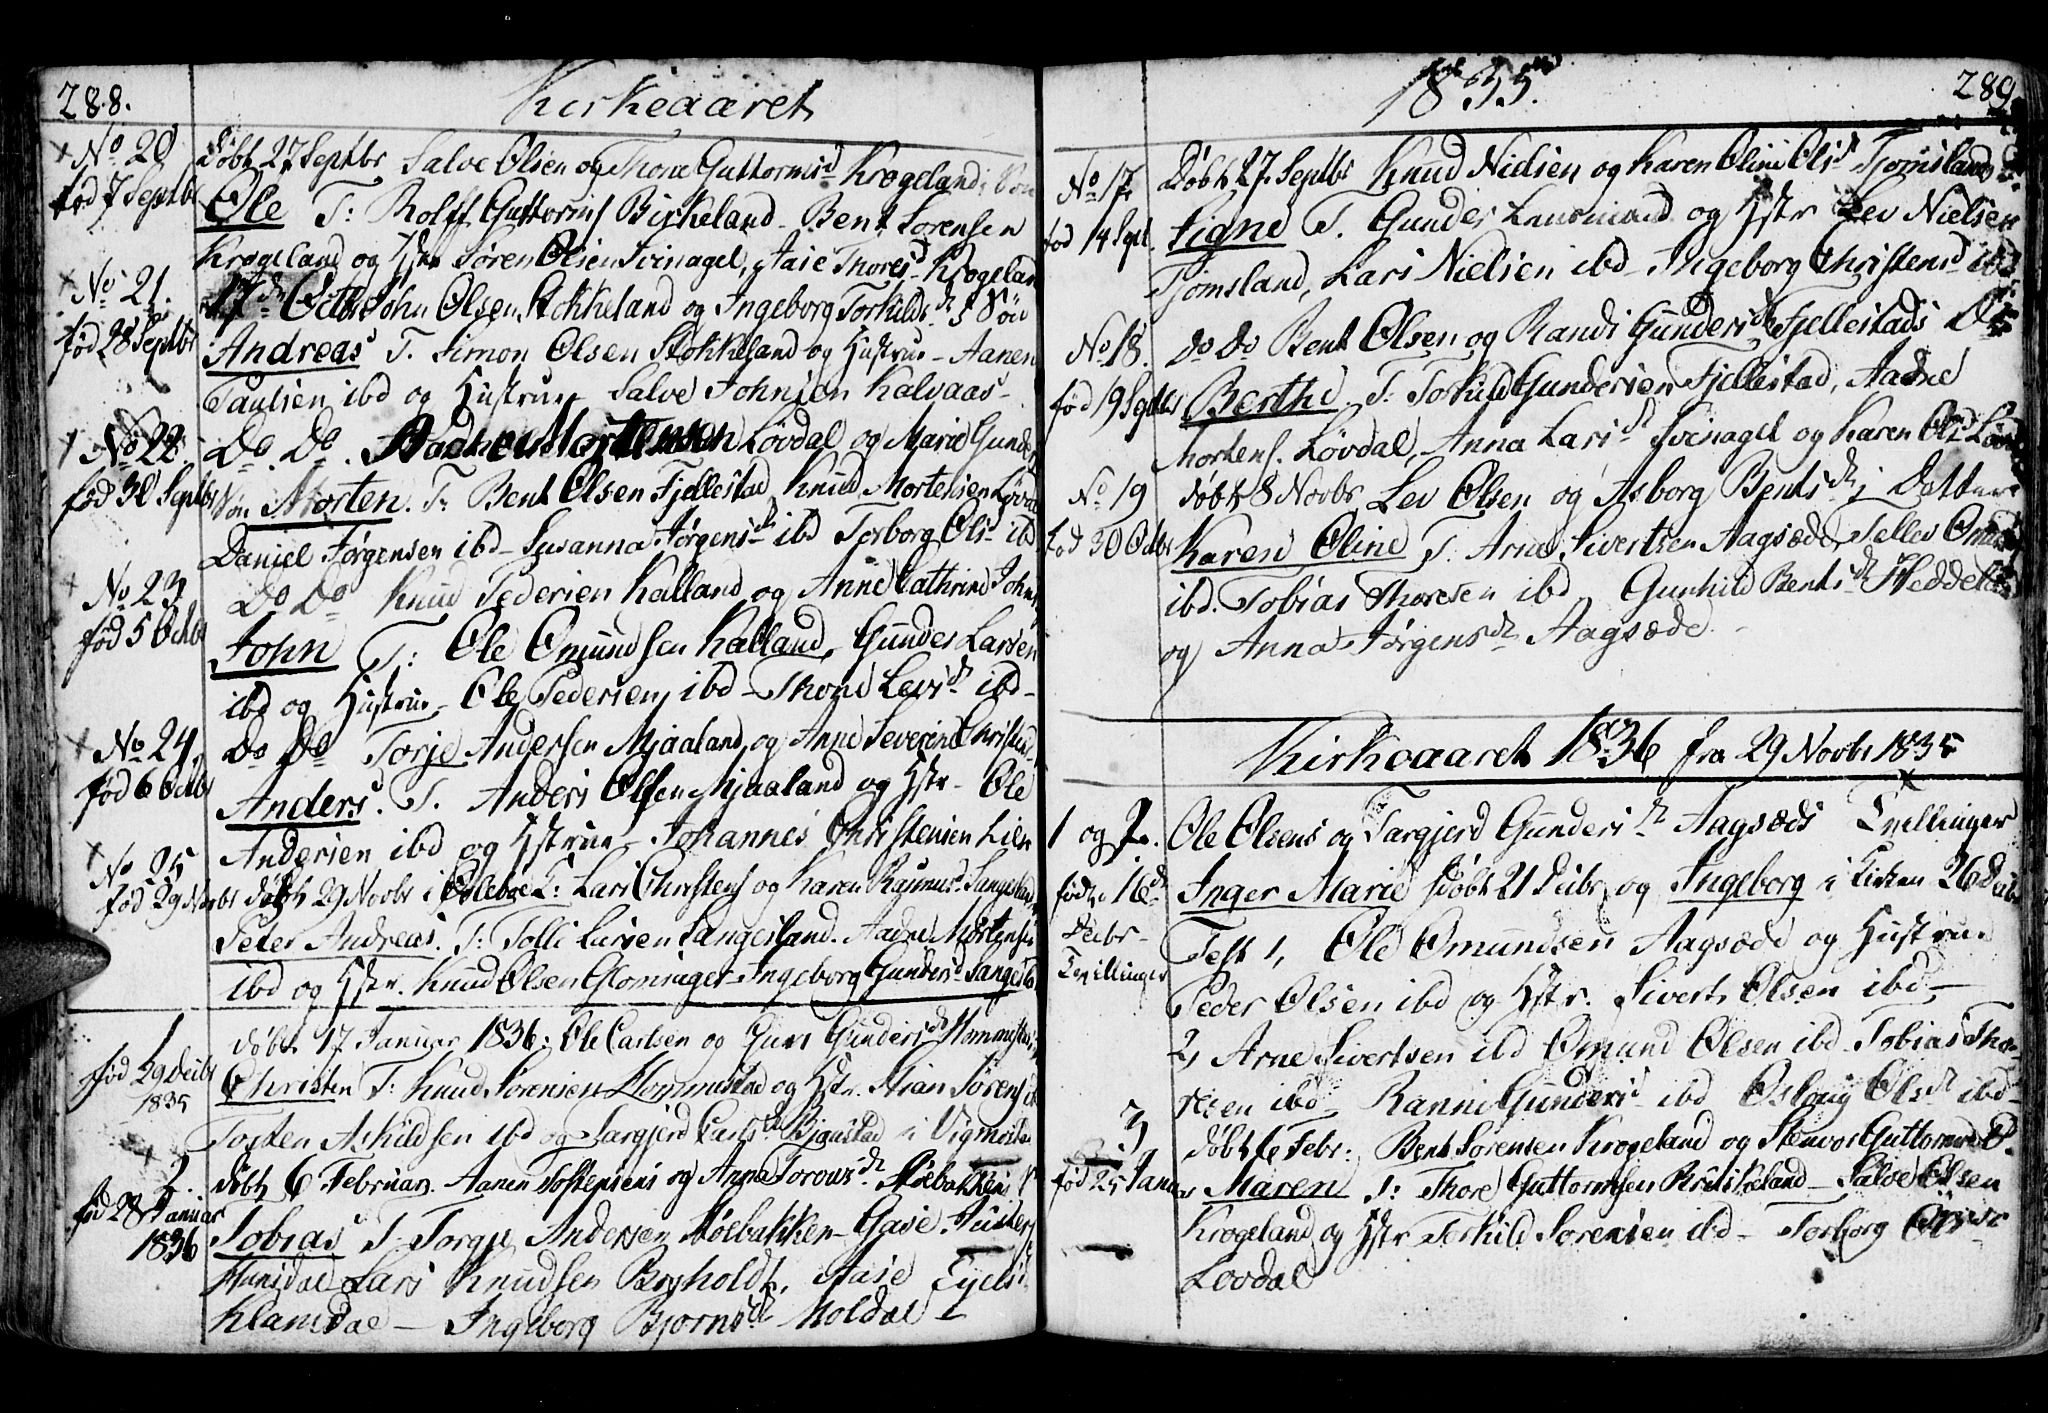 288.
Kirkeaaret
No 20
født 7 Septbr
Døbt 27 Septbr Salve Olsen og Thone Guttormsd Krogeland
Ole T: Rolff Guttorms Birkeland - Bent Sørensen
Krogeland og Hstr Søren Olsen Svinagel, Aase Thores Krogeland
No 21.
fød 28 Septbr
17de Octbr John Olsen Stokkeland og Ingeborg Torkildsdr Søn
Andreas T. Simon Olsen Stokkeland og Hustrue - Aanen
Paulsen ibd og Hustrue Salve Johnsen Kalvaas -
No 22.
fød 30 Septbr
Do. Do. Aadne Mortensen Løvdal og Marie Gunders
Søn Morten. T: Bent Olsen Fjellestad Knud Mortensen Løvdal
Daniel Jørgensen ibd - Susanna Jørgensdr ibd Torborg Olsd ibd
No 23
fød 5 Octbr
Do Do Knud Pedersen Kalland og Anne Cathrine Johns
John T: Ole Omundsen Kalland, Gunder Larsen
ibd og Hustrue - Ole Pedersen ibd - Thone Levisdr ibd -
No 24.
fød 6 Octbr
Do Do Torje Andersen Mjaaland og Anne Severine Christens
Anders. T. Anders Olsen Mjaaland og Hstr - Ole
Andersen ibd og Hstrue - Johannes Christensen Lien
No 25
fød 29 Novbr
døbt 29 Novbr i T: Lars Christens og Karen Rasmusd Sangesland
Peter Andreas. T: Tolli Larsen Sangesland. Aadne Mortensen
ibd og Hstr. Knud Olsen Glomsager - Ingeborg Gundersd Sangesl
1
fød 29 Decbr
1835
døbt 17 Januar 1836: Ole Carlsen og Guri Gundersdr Hommestad
Christen T: Knud Sørensen Hommestad og Hstr. Stian Sørens ibd
Torsten Askildsen ibd og Targjerd Carlsdr Bjgustad i Vigmostad
2.
fød 28 Januar
1836
døbt 6 Februar. Aanen Tostensens og Anne Tordvsdr Støebakken
Tobias T. Torgje Andersen Støebakken -
Lars Knudsen Bryholdt, Aase
Klamsdal - Ingeborg Bjornsdr Moldal
1835.
289
No 17
fød 14 Sept.
Døbt 27. Septbr Knud Nielsen og Karen Oline Olsd Tjomsland
Signe T. Gunder og Hstr Lev Nielsen
Tjomsland, Lars Nielsen ibd - Ingeborg Christensd ibd
No 18.
fød 19 Septbr
Do Do Bent Olsen og Randi Gundersdr Fjellestads
Berthe T: Torkild Gundersen Fjellestad, Aadne
Mortens. Løvdal, Anna Larsdr Svinagel og Karen Olsd Løvd
No 19
fød 30 Octbr
døbt 8 Novbr Lev Olsen og Asborg Bentsdr Datter
Karen Oline T. Arne Sivertsen Aagsæde, Tellev Omunds
ibd. Tobias Thoresen ibd Gunhild Bentsdr Heddeland
og Anna Jørgensdr Aagsæde -
Kirkeaaret 1836 fra 29 Novbr 1835
1 og 2.
fødte 16de
Decbr -
Tvillinger
Ole Olsens og Targjerd Gundersdr Aagsæds Tvillinger
Inger Marie døbt 21 Decbr og Ingeborg i Kirken 26 Decbr
Test 1, Ole Omundsen Aagsæde og Hustrue
Peder Olsen ibd og Hstr. Sivert Olsen ibd, -
2, Arne Sivertsen ibd Omund Olsen ibd - Tobias Tho-
resen ibd - Ranni Gundersd ibd Oslaug Olsdr ibd -
3
fød 25 Januar
døbt 6 Febr: Bent Sørensen Krogeland og Stenvor Guttormsd D.
Maren T: Thore Guttormsen Birkeland - Salve Olsen
Krogeland og Hstr Torkild Sørensen ibd - Torborg
Løvdal